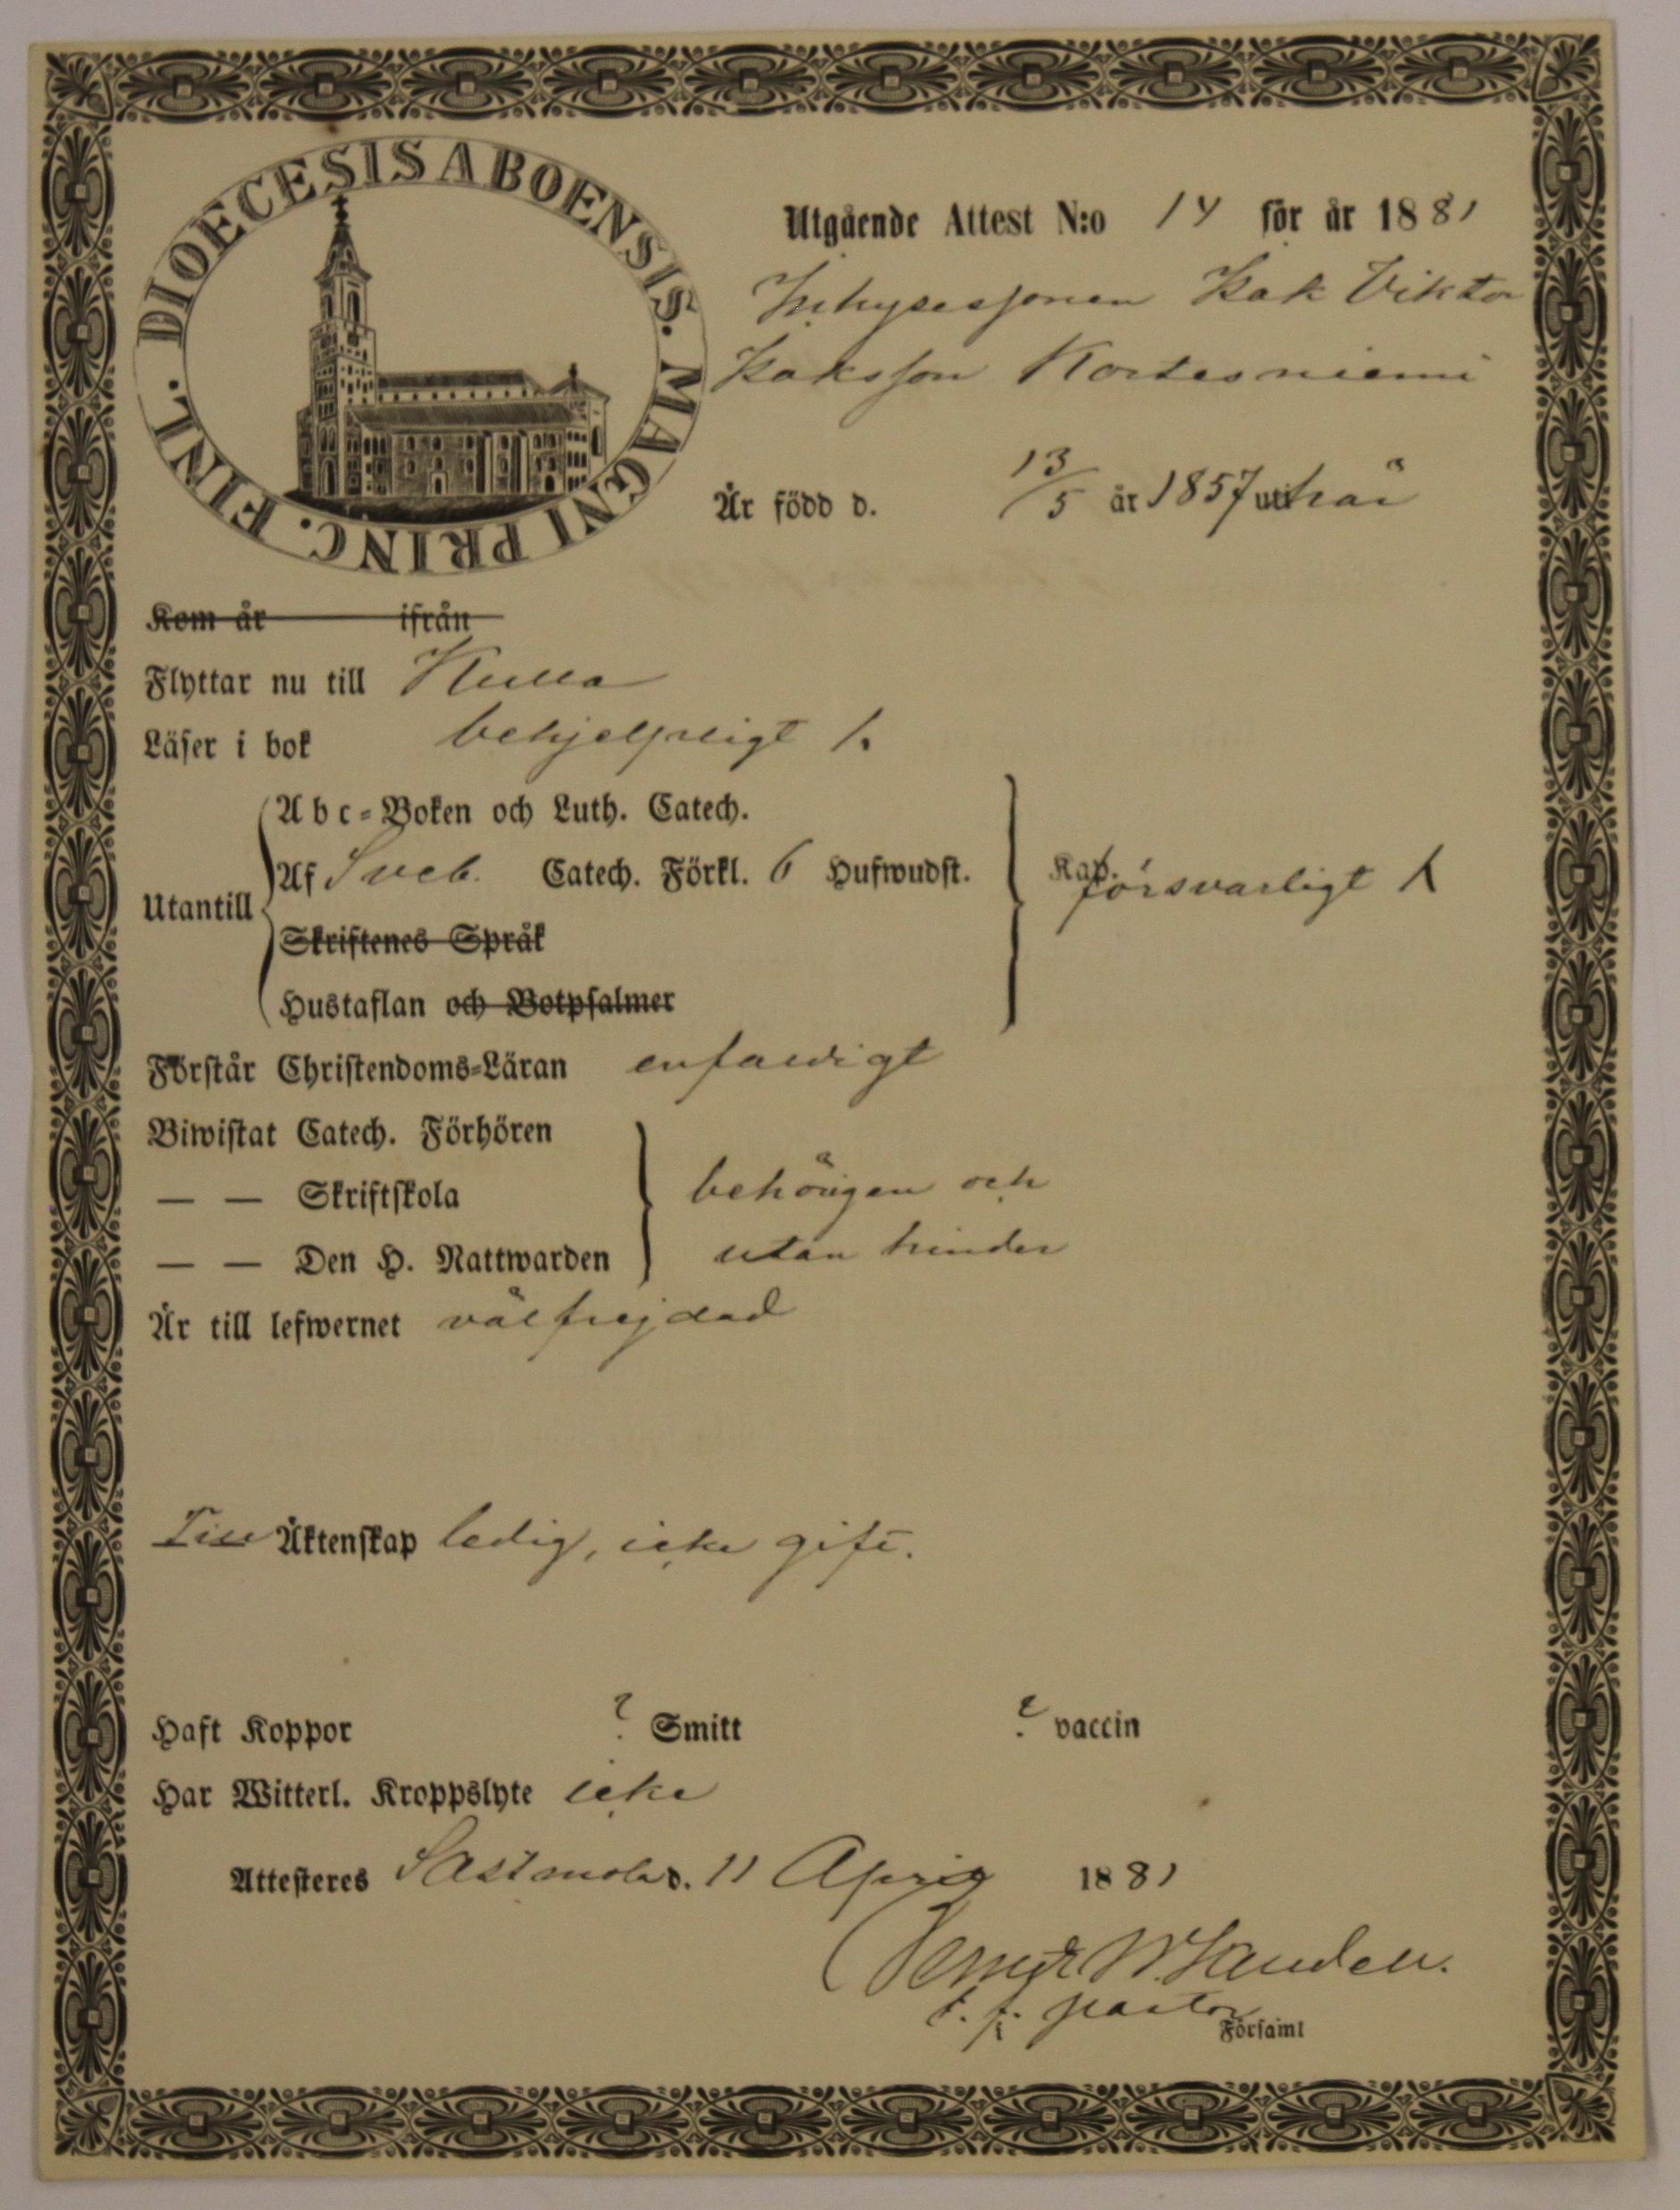 DIOECESIS ABOENSIS. MAGNI PRINC. FINL.
Utgående Attest N:o 14 för år 1881
Inhysessonen Isak Viktor
Isaksson Kortesniemi
Är född d. 13/5 år 1857 uti här
Kom år ifrån
Flyttar nu till Kulla
Läser i bok behjelpligt /.
Abc-Boken och Luth. Catech.
Utantill Af Sveb. Catech. Förkl. 6 Hufwudst. Kap. försvarligt
Skriftenes Språk
Hustaflan och Botpsalmer
Förstår Christendoms-Läran enfaldigt
Biwistat Catech. Förhören
— — Skriftskola behörigen och
— — Den H. Nattwarden utan hinder
Är till lefwernet välfrejdad
Till Äktenskap ledig, icke gift.
Haft Koppor ? Smitt ? vaccin
Har Witterl. Kroppslyte icke
Attesteres Sastmola d. 11 April 1881
Landell.
t. f. pastor
i Församl